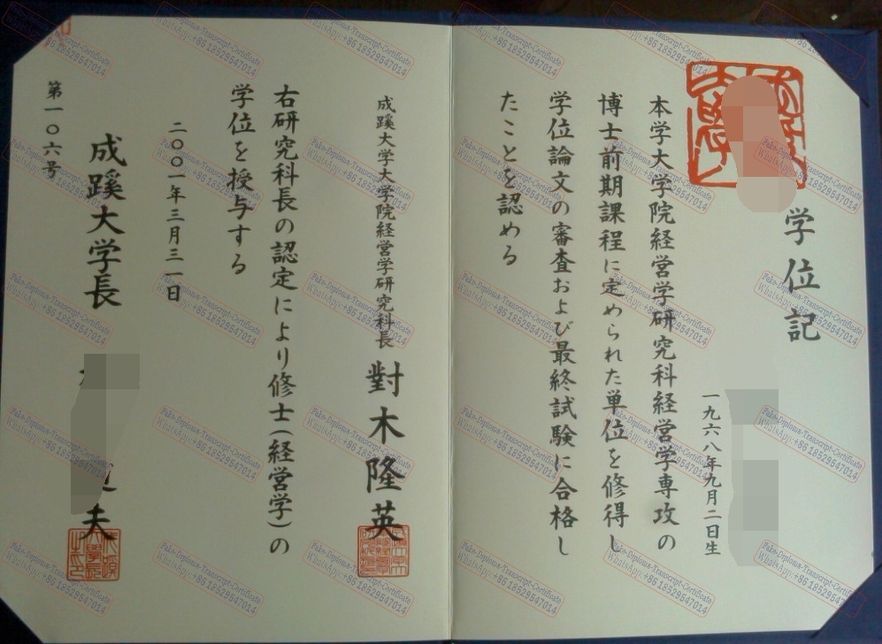 学位記
一九六八年九月二日生
本学大学院経営学研究科経営学専攻の
博士前期課程に定められた単位を修得し
学位論文の審査および最終試験に合格し
たことを認める
成蹊大学大学院経営学研究科長
對木隆英
右研究科長の認定により修士(経営学)の
学位を授与する
二〇〇一年三月三一日
成蹊大学長
夫
第一〇六号
Fake-Diploma-Transcript-Certificate
WhatsApp:+86 18529547014